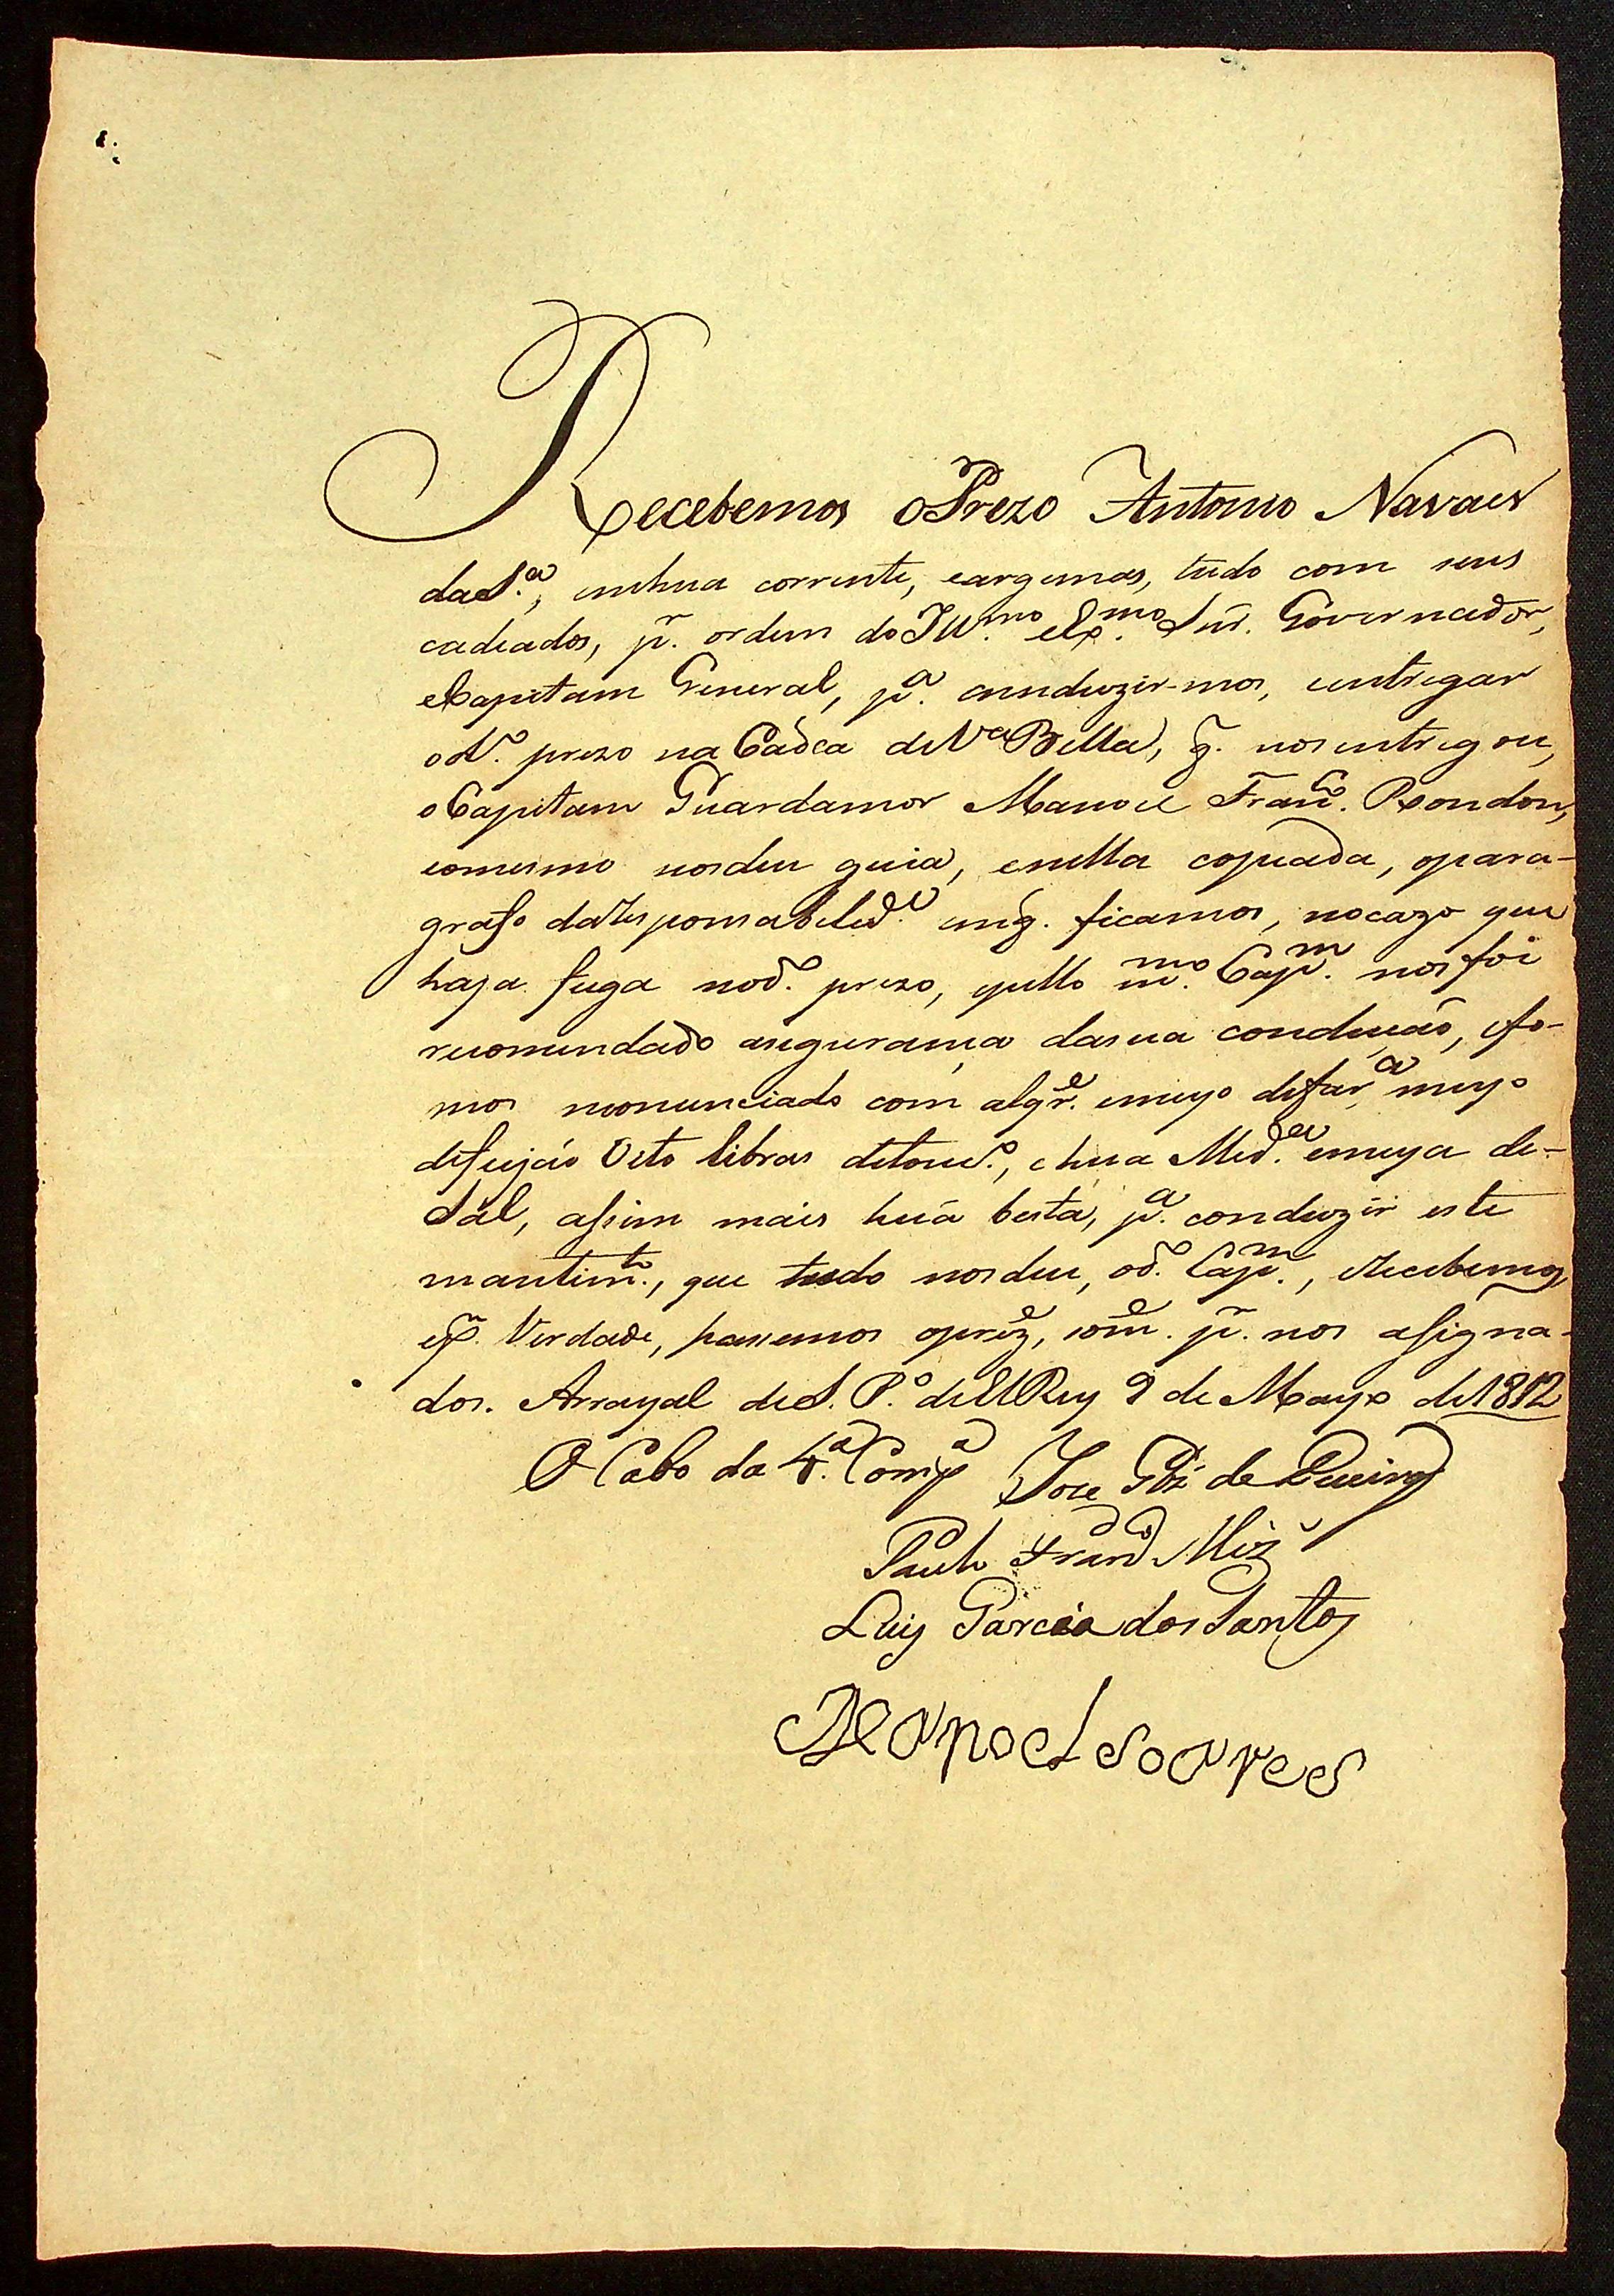 Recebemos oPrezo Antonio Navaes
daS.ª, emhua corrente, eargemas, tudo com seus
cadeados, p.r ordem do Ill.mo eEx.mo Snr. Governador,
eCapitam General, p.ª cunduzir-mos, eentregar
od.º prezo na Cadea deV.ª Bella, q̃. nosentregou,
oCapitam Guardamor Manoel Franc.º Rondon,
eomesmo nosdeu guia, enella copeada, opara-
grafo daResponsabelid.e emq̃. ficamos, nocazo que
haja fuga nod.º prezo, epello m.mo Cap.m nosfoi
recomendado asegurança dasua condução, efo-
mos moniciado com alqr.e emeyo defar.ª meyo
defeijão Oito libras detouc.º, ehua Med.ª emeya de-
Sal, assim mais huã besta, p.ª conduzir este
mantim.to, que tudo nosdeu, od.º Cap.m, eRecebemos
ep.r Verdade, passemos oprez.e, som.e p.r nos assigna-
dos. Arrayal deS. P.º delRey 9 de Mayo de1812
O Cabo da 4.ª Comp.ª Joze de
Paulo Fran.co Miz
Luis Garcia dosSantos
Manoel soares